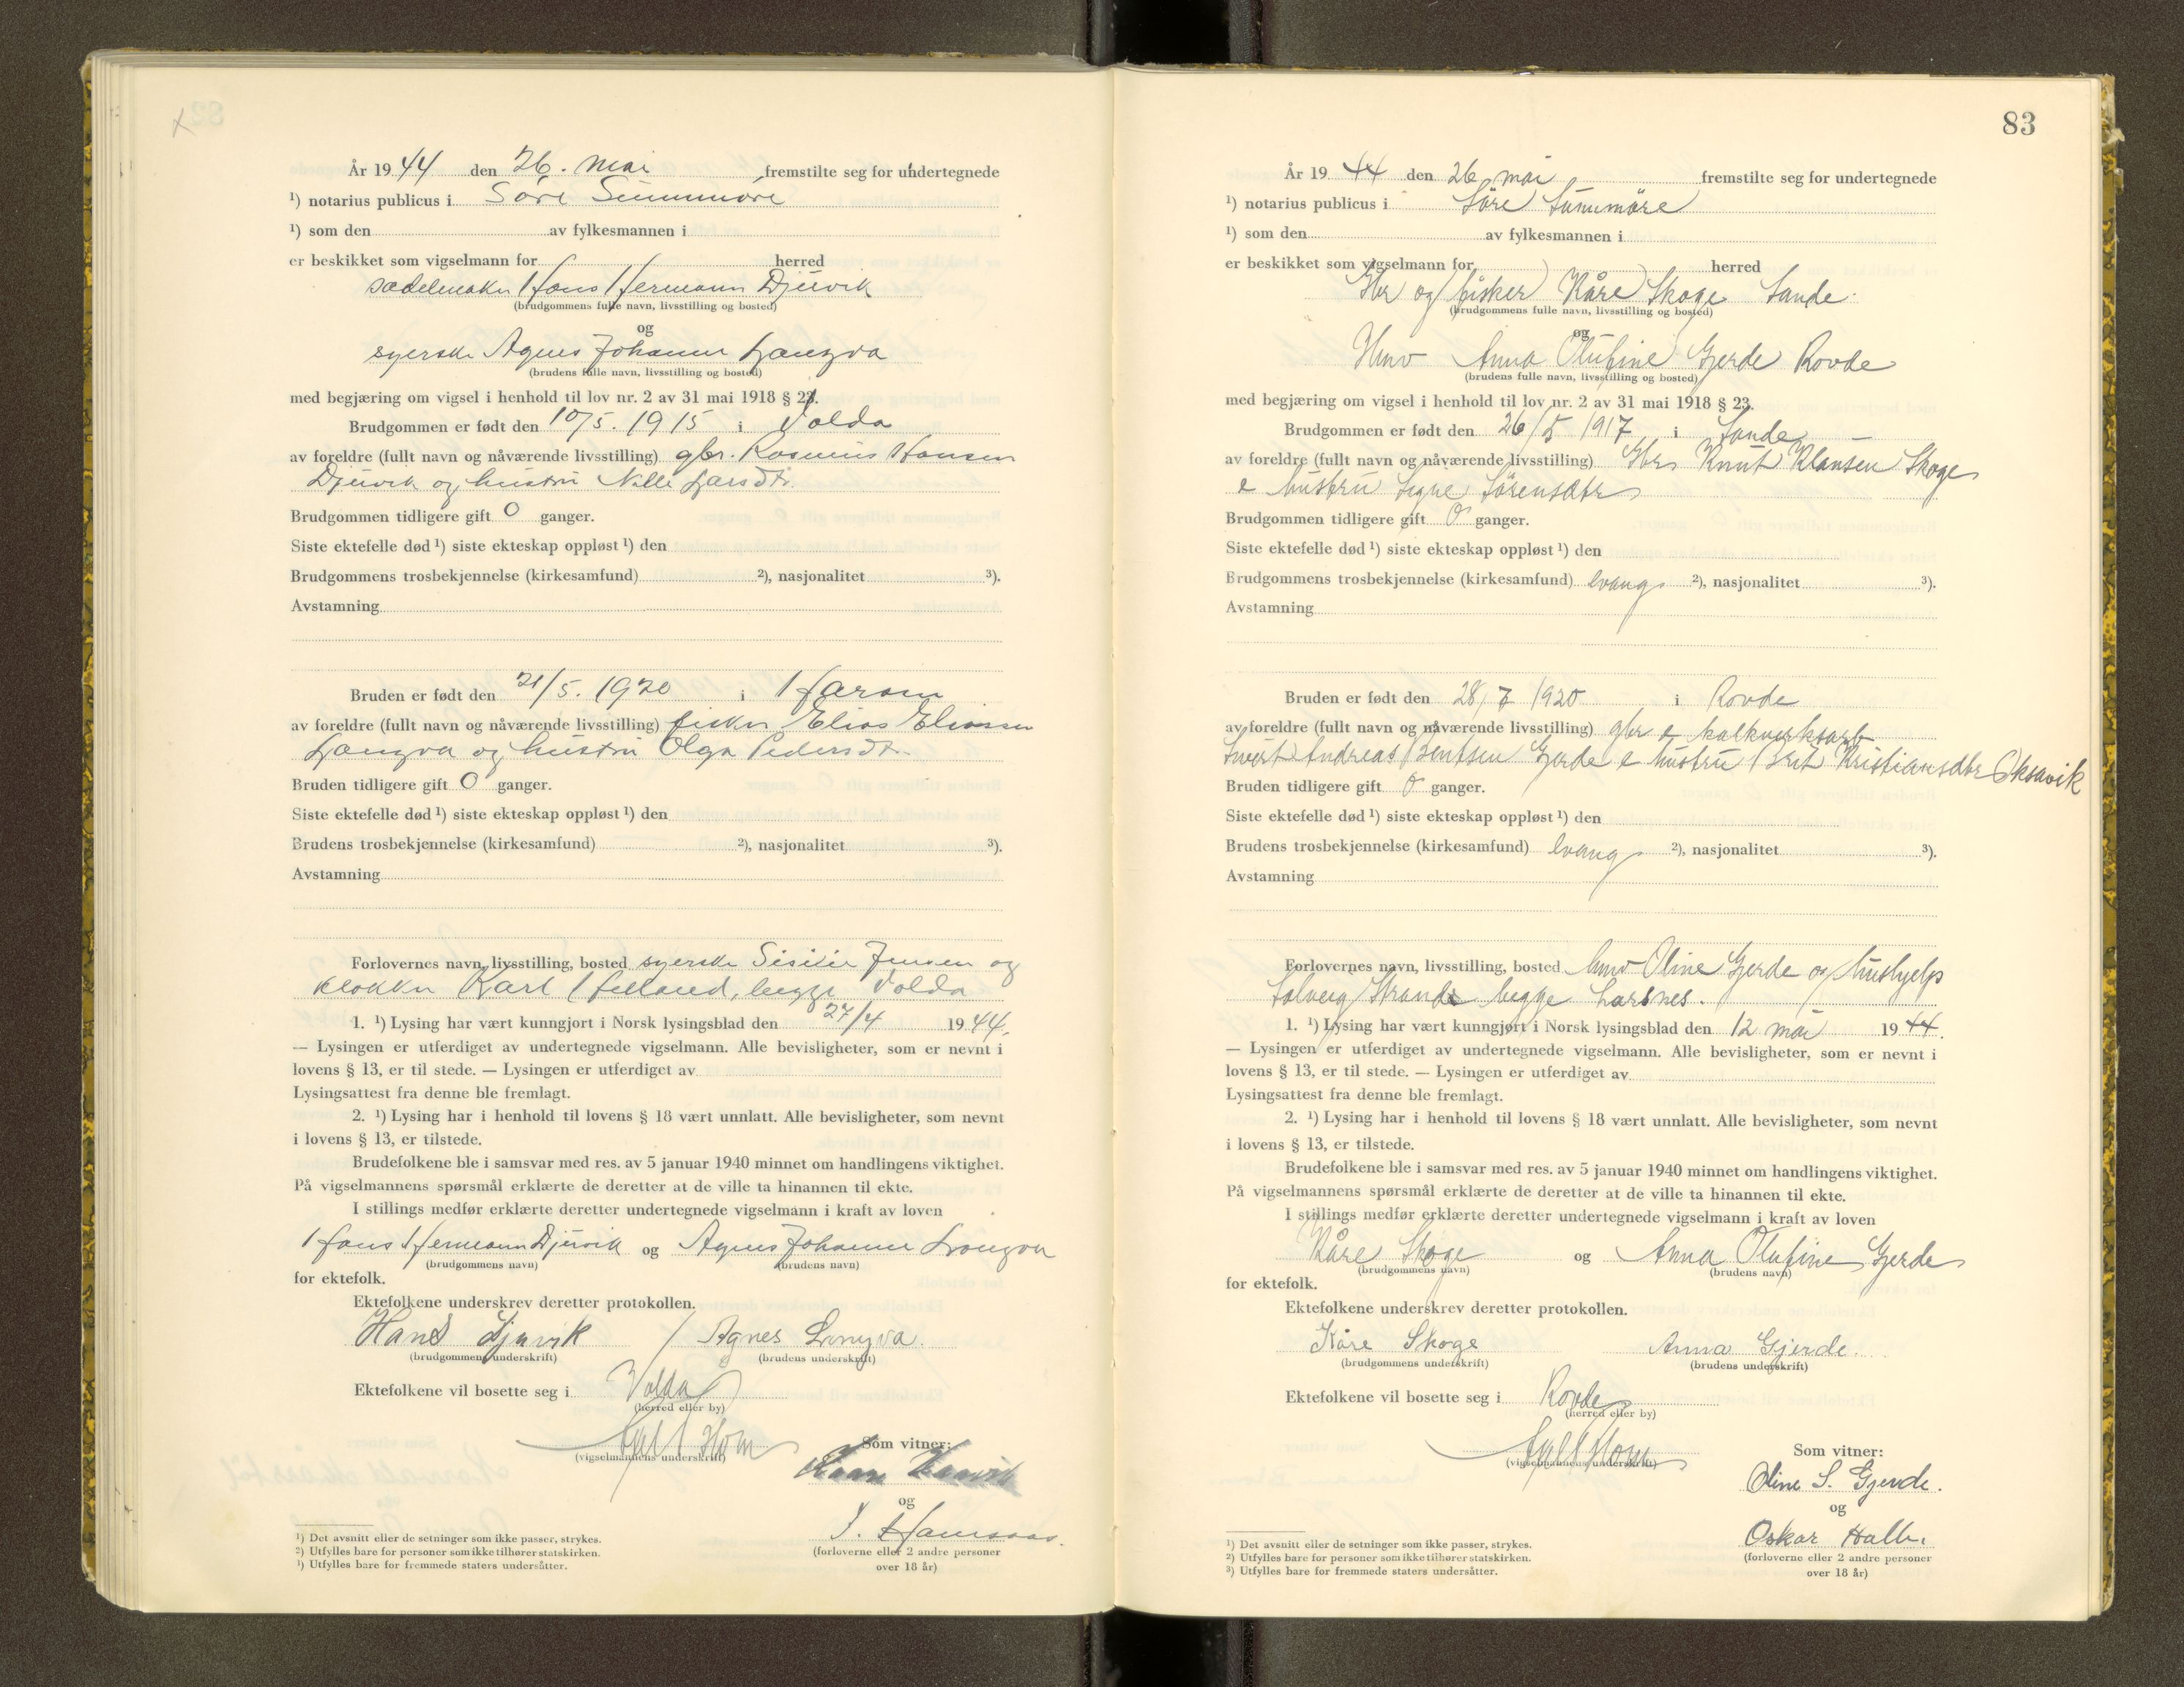 År 1944 den 26. mai fremstilte seg for undertegnede
¹) notarius publicus i Søre Sunnmøre
¹) som den av fylkesmannen i
er beskikket som vigselmann for herred
sadelmaker Hans Hermann Djuvik
(brudgommens fulle navn, livsstilling og bosted)
og
syerske Agnes Johanne Longva
(brudens fulle navn, livsstilling og bosted)
med begjæring om vigsel i henhold til lov nr. 2 av 31 mai 1918 § 23.
Brudgommen er født den 10/5. 1915 i Volda
av foreldre (fullt navn og nåværende livsstilling) gbr. Rasmus Hansen
Djuvik og hustru Nille Larsdtr.
Brudgommen tidligere gift 0 ganger.
Siste ektefelle død ¹) siste ekteskap oppløst ¹) den
Brudgommens trosbekjennelse (kirkesamfund) ²), nasjonalitet ³).
Avstamning
Bruden er født den 21/5. 1920 i Haram
av foreldre (fullt navn og nåværende livsstilling) fisker Elias Eliassen
Longva og hustru Olga Pedersdtr.
Bruden tidligere gift 0 ganger.
Siste ektefelle død ¹) siste ekteskap oppløst ¹) den
Brudens trosbekjennelse (kirkesamfund) ²), nasjonalitet ³).
Avstamning
Forlovernes navn, livsstilling, bosted syerske Sisilie Jensen og
klokker Karl Helland, begge Volda
1. ¹) Lysing har vært kunngjort i Norsk lysingsblad den 27/4 1944.
— Lysingen er utferdiget av undertegnede vigselmann. Alle bevisligheter, som er nevnt i
lovens § 13, er til stede. — Lysingen er utferdiget av
Lysingsattest fra denne ble fremlagt.
2. ¹) Lysing har i henhold til lovens § 18 vært unnlatt. Alle bevisligheter, som nevnt
i lovens § 13, er tilstede.
Brudefolkene ble i samsvar med res. av 5 januar 1940 minnet om handlingens viktighet.
På vigselmannens spørsmål erklærte de deretter at de ville ta hinannen til ekte.
I stillings medfør erklærte deretter undertegnede vigselmann i kraft av loven
Hans Hermann Djuvik og Agnes Johanne Longva
(brudgommens navn) (brudens navn)
for ektefolk.
Ektefolkene underskrev deretter protokollen.
Hans Djuvik / Agnes Longva.
(brudgommens underskrift) (brudens underskrift)
Ektefolkene vil bosette seg i Volda
(herred eller by)
(vigselmannens underskrift)
Som vitner:
og
(forloverne eller 2 andre personer
over 18 år)
¹) Det avsnitt eller de setninger som ikke passer, strykes.
²) Utfylles bare for personer som ikke tilhører statskirken.
³) Utfylles bare for fremmede staters undersåtter.
83
År 1944 den 26 mai fremstilte seg for undertegnede
¹) notarius publicus i Søre Sunnmøre
¹) som den av fylkesmannen i
er beskikket som vigselmann for herred
Gbr og fisker Kåre Skoge Sande.
(brudgommens fulle navn, livsstilling og bosted)
og
Hmv Anna Olufine Gjerde Rovde
(brudens fulle navn, livsstilling og bosted)
med begjæring om vigsel i henhold til lov nr. 2 av 31 mai 1918 § 23.
Brudgommen er født den 26/5 1917 i Sande
av foreldre (fullt navn og nåværende livsstilling) Gbr Knut Klausen Skoge
e hustru Signe Sørensdtr
Brudgommen tidligere gift 0 ganger.
Siste ektefelle død ¹) siste ekteskap oppløst ¹) den
Brudgommens trosbekjennelse (kirkesamfund) evang ²), nasjonalitet ³).
Avstamning
Bruden er født den 28/7 1920 i Rovde
av foreldre (fullt navn og nåværende livsstilling) gbr & kalkverksarb
Sivert Andreas Bentsen Gjerde e hustru Brit Kristiansdtr Oksavik
Bruden tidligere gift 0 ganger.
Siste ektefelle død ¹) siste ekteskap oppløst ¹) den
Brudens trosbekjennelse (kirkesamfund) evang ²), nasjonalitet ³).
Avstamning
Forlovernes navn, livsstilling, bosted hmv Oline Gjerde og hushjelp
Solveig Strand begge Larsnes.
1. ¹) Lysing har vært kunngjort i Norsk lysingsblad den 12 mai 1944.
— Lysingen er utferdiget av undertegnede vigselmann. Alle bevisligheter, som er nevnt i
lovens § 13, er til stede. — Lysingen er utferdiget av
Lysingsattest fra denne ble fremlagt.
2. ¹) Lysing har i henhold til lovens § 18 vært unnlatt. Alle bevisligheter, som nevnt
i lovens § 13, er tilstede.
Brudefolkene ble i samsvar med res. av 5 januar 1940 minnet om handlingens viktighet.
På vigselmannens spørsmål erklærte de deretter at de ville ta hinannen til ekte.
I stillings medfør erklærte deretter undertegnede vigselmann i kraft av loven
Kåre Skoge og Anna Olufine Gjerde
(brudgommens navn) (brudens navn)
for ektefolk.
Ektefolkene underskrev deretter protokollen.
Kåre Skoge Anna Gjerde.
(brudgommens underskrift) (brudens underskrift)
Ektefolkene vil bosette seg i Rovde
(herred eller by)
(vigselmannens underskrift)
Som vitner:
Oline S. Gjerde.
og
Oskar
(forloverne eller 2 andre personer
over 18 år)
¹) Det avsnitt eller de setninger som ikke passer, strykes.
²) Utfylles bare for personer som ikke tilhører statskirken.
³) Utfylles bare for fremmede staters undersåtter.